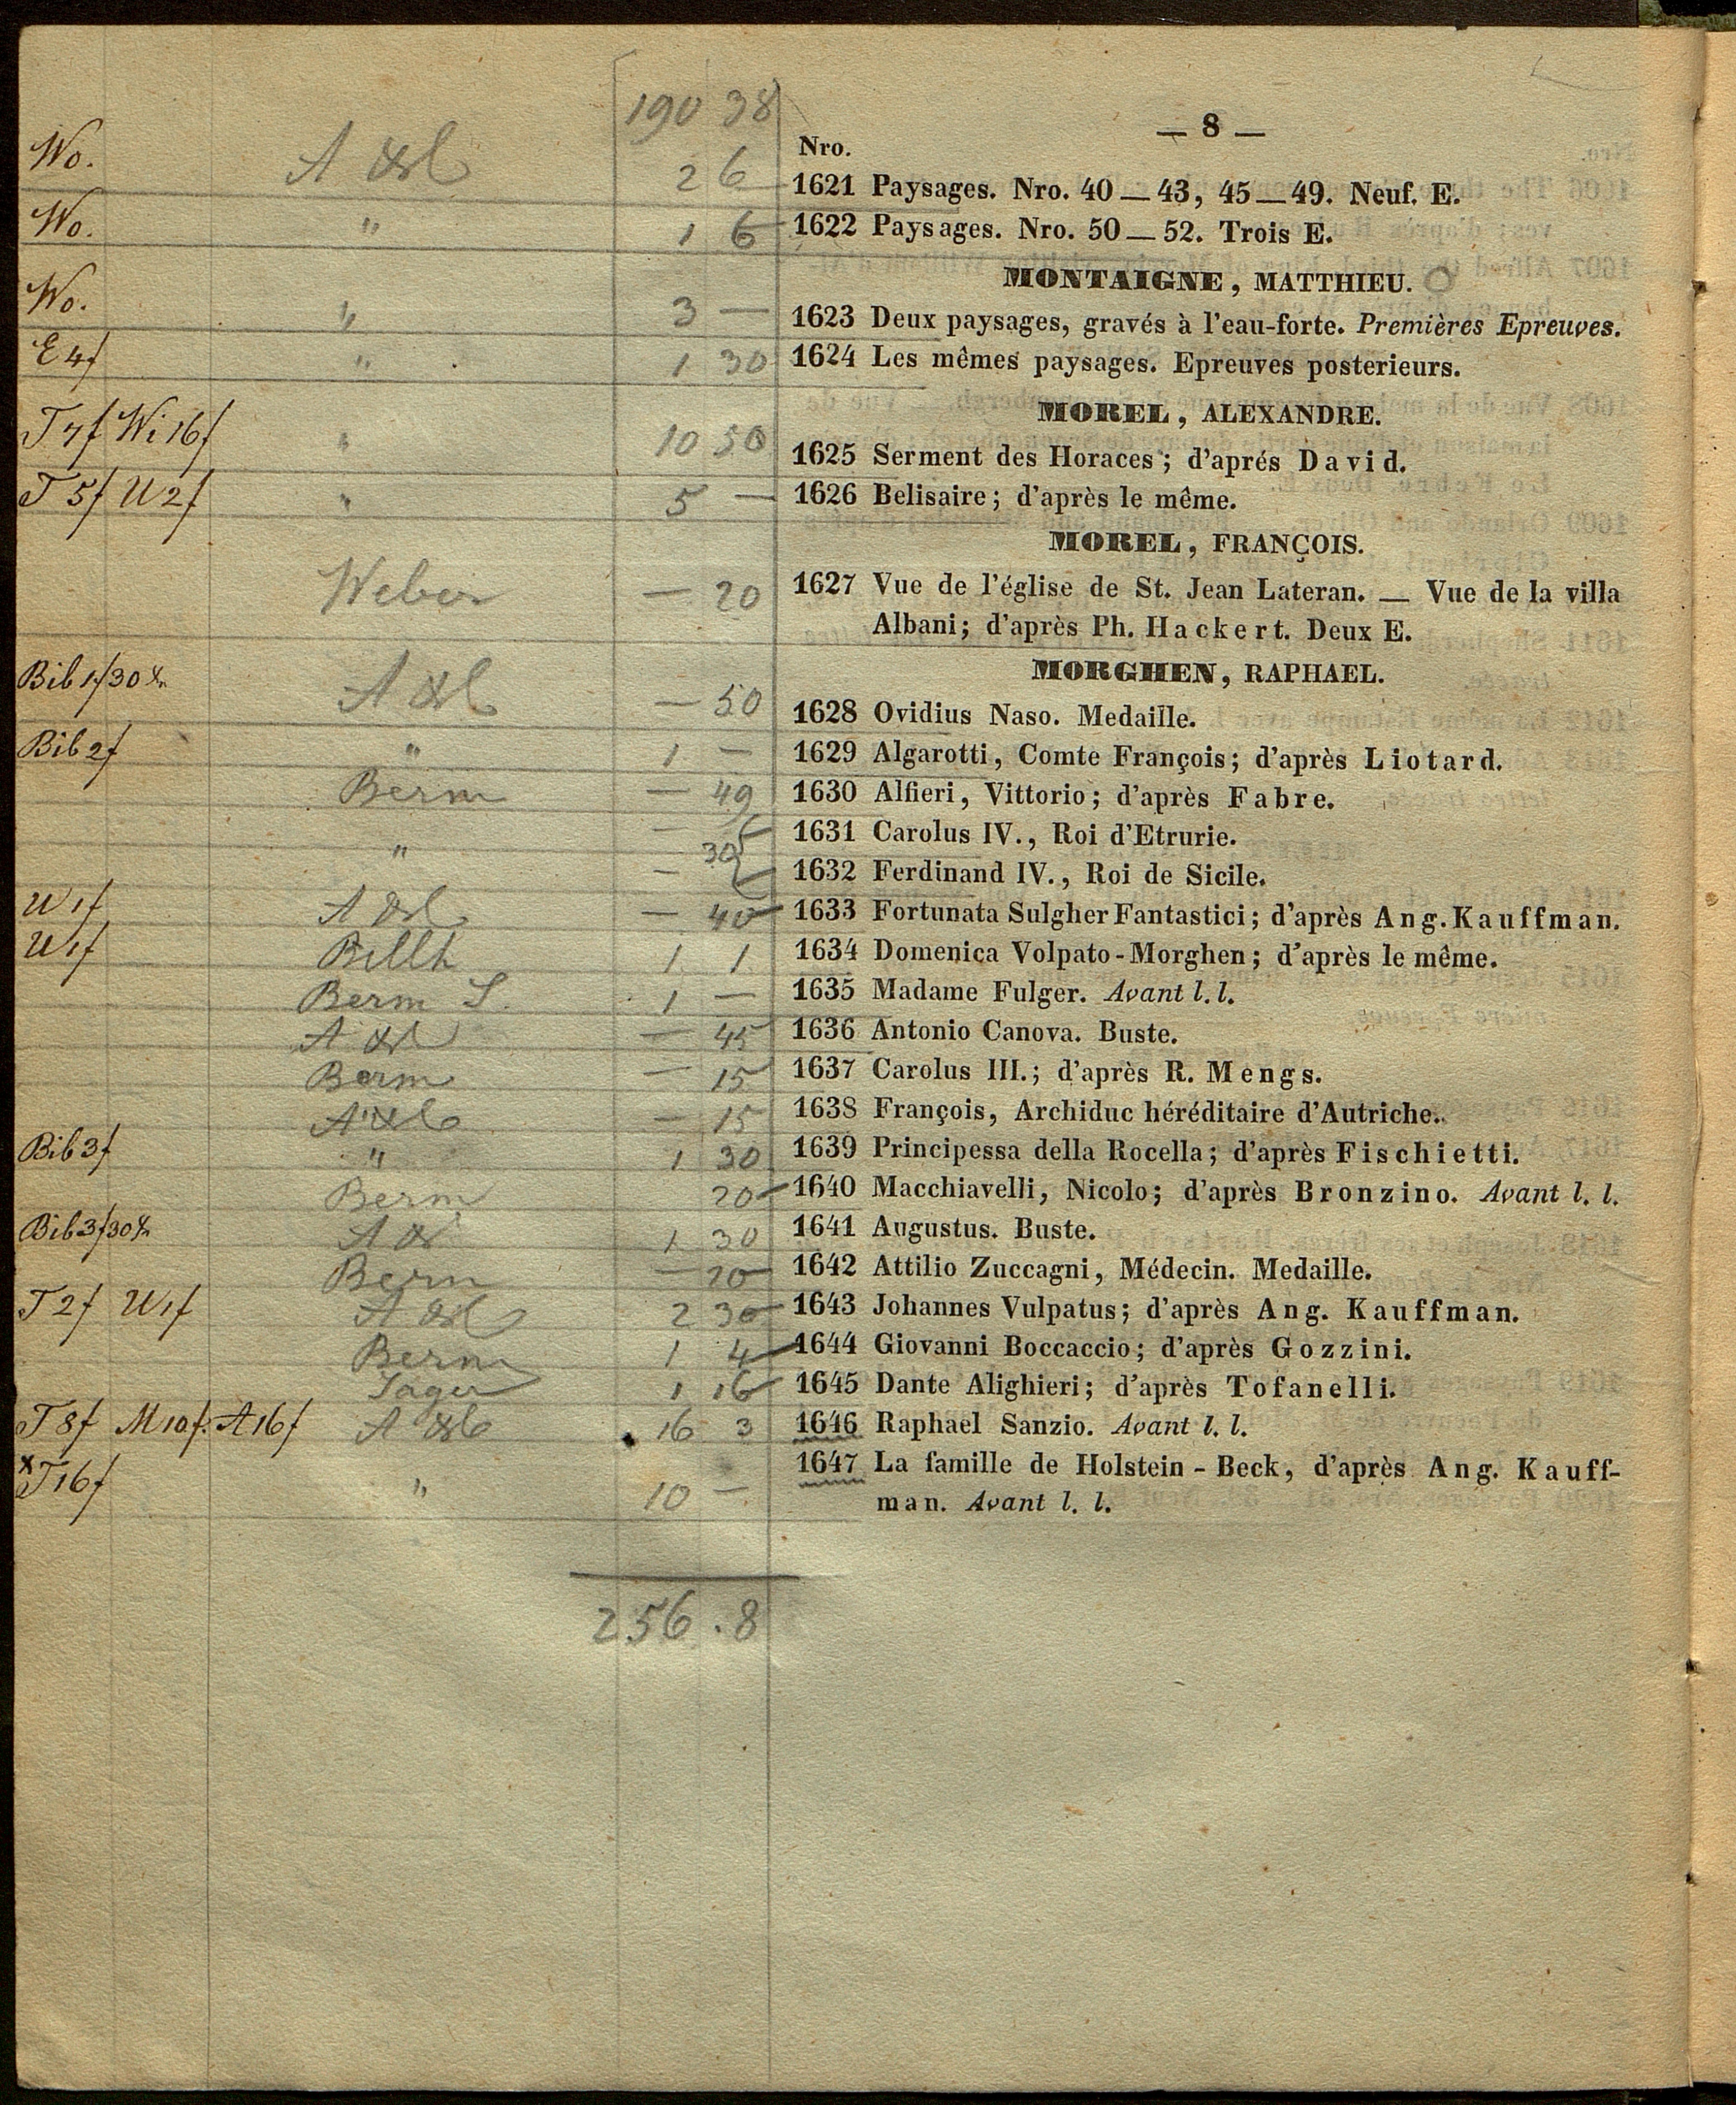 190 38
— 8 —
Nro.
Wo. 2 6 1621 Paysages. Nro. 40 — 43, 45 — 49. Neuf. E.
Wo. " 1 6 1622 Paysages. Nro. 50 — 52. Trois E.
MONTAIGNE, MATTHIEU.
Wo. " 3 — 1623 Deux paysages, gravés à l'eau-forte. Premières Epreuves.
E 4f " 1 30 1624 Les mêmes paysages. Epreuves posterieurs.
MOREL, ALEXANDRE.
T 7f Wi 16f " 10 50 1625 Serment des Horaces; d'aprés David.
T 5f U 2f " 5 — 1626 Belisaire; d'après le même.
MOREL, FRANÇOIS.
Weber — 20 1627 Vue de l'église de St. Jean Lateran. — Vue de la villa
Albani; d'après Ph. Hackert. Deux E.
MORGHEN, RAPHAEL.
Bib 1f 30 — 50 1628 Ovidius Naso. Medaille.
Bib 2f " 1 — 1629 Algarotti, Comte François; d'après Liotard.
Berm — 49 1630 Alfieri, Vittorio; d'après Fabre.
— 1631 Carolus IV., Roi d'Etrurie.
" 30
— 1632 Ferdinand IV., Roi de Sicile.
U 1f — 40 1633 Fortunata Sulgher Fantastici; d'après Ang. Kauffman.
U 1f Billh 1 1 1634 Domenica Volpato-Morghen; d'après le même.
Berm S. 1 — 1635 Madame Fulger. Avant l. l.
— 45 1636 Antonio Canova. Buste.
Berm — 15 1637 Carolus III.; d'après R. Mengs.
— 15 1638 François, Archiduc héréditaire d'Autriche.
Bib 3f " 1 30 1639 Principessa della Rocella; d'après Fischietti.
Berm 20 1640 Macchiavelli, Nicolo; d'après Bronzino. Avant l. l.
Bib 3f 30 1 30 1641 Augustus. Buste.
Berm — 20 1642 Attilio Zuccagni, Médecin. Medaille.
T 2f U 1f 2 30 1643 Johannes Vulpatus; d'après Ang. Kauffman.
Berm 1 4 1644 Giovanni Boccaccio; d'après Gozzini.
Jäger 1 16 1645 Dante Alighieri; d'après Tofanelli.
T 8f M 10f. A 16f 16 3 1646 Raphael Sanzio. Avant l. l.
x T 16f " 10 — 1647 La famille de Holstein-Beck, d'après Ang. Kauff-
man. Avant l. l.
256 . 8